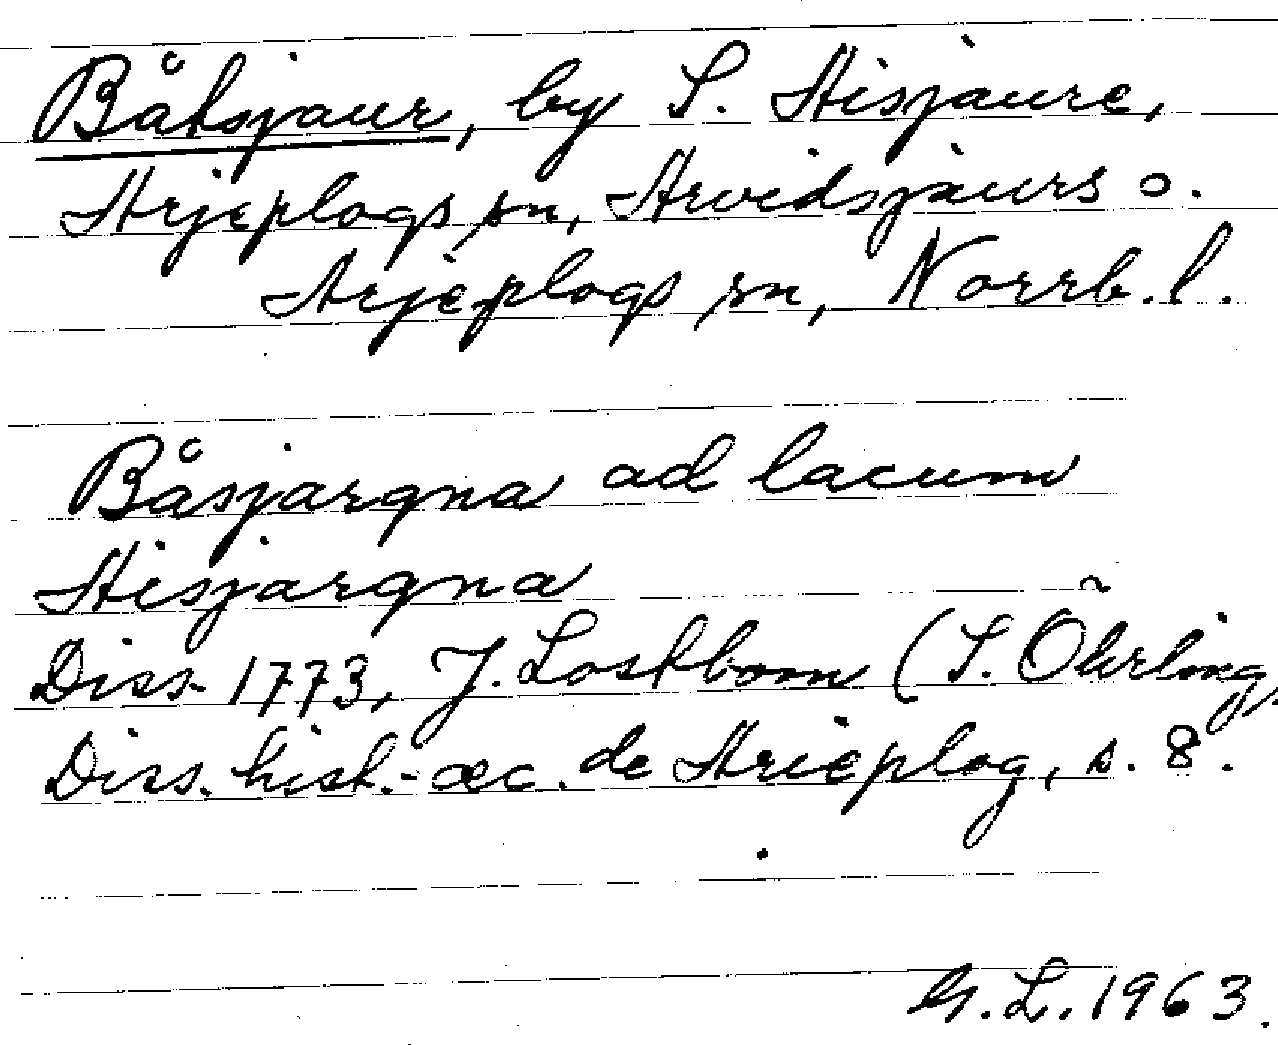 Båtsjaur, by S. Aisjaure,
Arjeplogs sn, Arvidsjaurs o.
Arjeplogs sn, Norrb. l.
Båsjargna ad lacum
Aisjargna
Diss. 1773, J. Lostbom (S. Öhrling,
Diss. hist.-œc. de Arieplog, s. 8.
G. L. 1963.